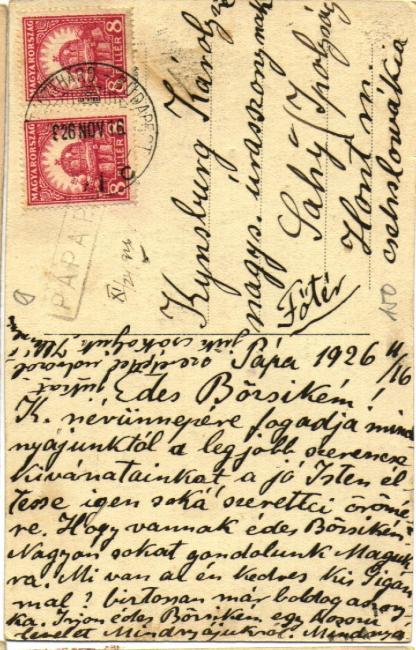 MAGYARORSZÁG
8 FILLÉR 8
MAGYARORSZÁG
8 FILLÉR 8
BUDAPEST
926 NOV
PÁPA
XI
Kynsburg Károly
nagys. úrasszonynak
Sahy / Ipolyság
Hont m.
Főtér
csehslovákia
150
Pápa 1926 11/16
Édes Börsikém!
K. névünnepére fogadja mind
nyájunktól a legjobb szerencse
kivánatainkat a jó Isten él
tesse igen soká szerettei örömé
re. Hogy vannak édes Börsikém
Nagyon sokat gondolunk Maguk
ra. Mi van al én kedves kis
mal? biztosan már boldog
ka. Irjon édes Börsikém egy hosszú
levelet Mindnyájukról.
szeretettel
csókoljuk